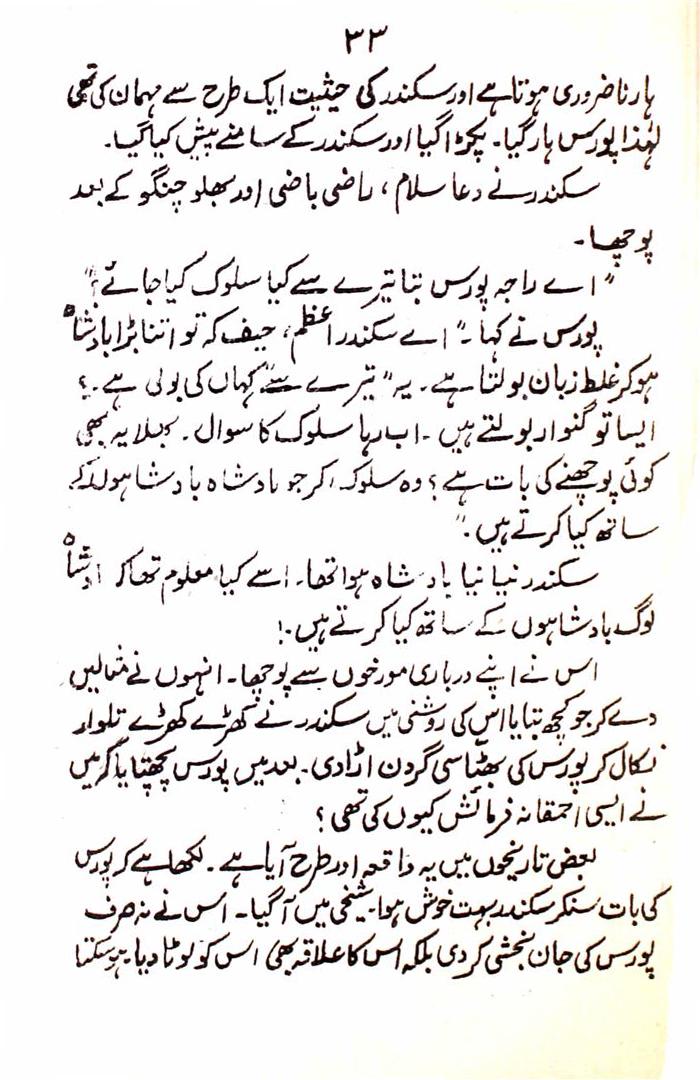 ۳۳
ہارنا ضروری ہوتا ہے اور سکندر کی حیثیت ایک طرح سے مہمان کی تھی
لہٰذا پورس ہار گیا۔ پکڑا گیا اور سکندر کے سامنے پیش کیا گیا۔
سکندر نے دعا سلام ، راضی باضی اور بھلو چنگو کے بعد
پوچھا۔
"اے راجہ پورس بتا تیرے سے کیا سلوک کیا جائے؟"
پورس نے کہا۔ "اے سکندر اعظم، حیف کہ تو اتنا بڑا بادشاہ
ہو کر غلط زبان بولتا ہے۔ یہ "تیرے سے" کہاں کی بولی ہے۔؟
ایسا تو گنوار بولتے ہیں ۔ اب رہا سلوک کا سوال ۔ بھلا یہ بھی
کوئی پوچھنے کی بات ہے ؟ وہ سلوک کر جو بادشاہ بادشاہوں کے
ساتھ کیا کرتے ہیں ۔"
سکندر نیا نیا بادشاہ ہوا تھا۔ اسے کیا معلوم تھا کہ بادشاہ
لوگ بادشاہوں کے ساتھ کیا کرتے ہیں۔!
اس نے اپنے درباری مورخوں سے پوچھا۔ انہوں نے مثالیں
دے کر جو کچھ بتایا اس کی روشنی میں سکندر نے کھڑے کھڑے تلوار
نکال کر پورس کی بھٹا سی گردن اڑا دی۔ بعد میں پورس پچھتایا کہ میں
نے ایسی احمقانہ فرمائش کیوں کی تھی ؟
بعض تاریخوں میں یہ واقعہ اور طرح آیا ہے ۔ لکھا ہے کہ پورس
کی بات سنکر سکندر بہت خوش ہوا۔ شیخی میں آ گیا۔ اس نے نہ صرف
پورس کی جان بخشی کر دی بلکہ اس کا علاقہ بھی اس کو لوٹا دیا۔ ہو سکتا